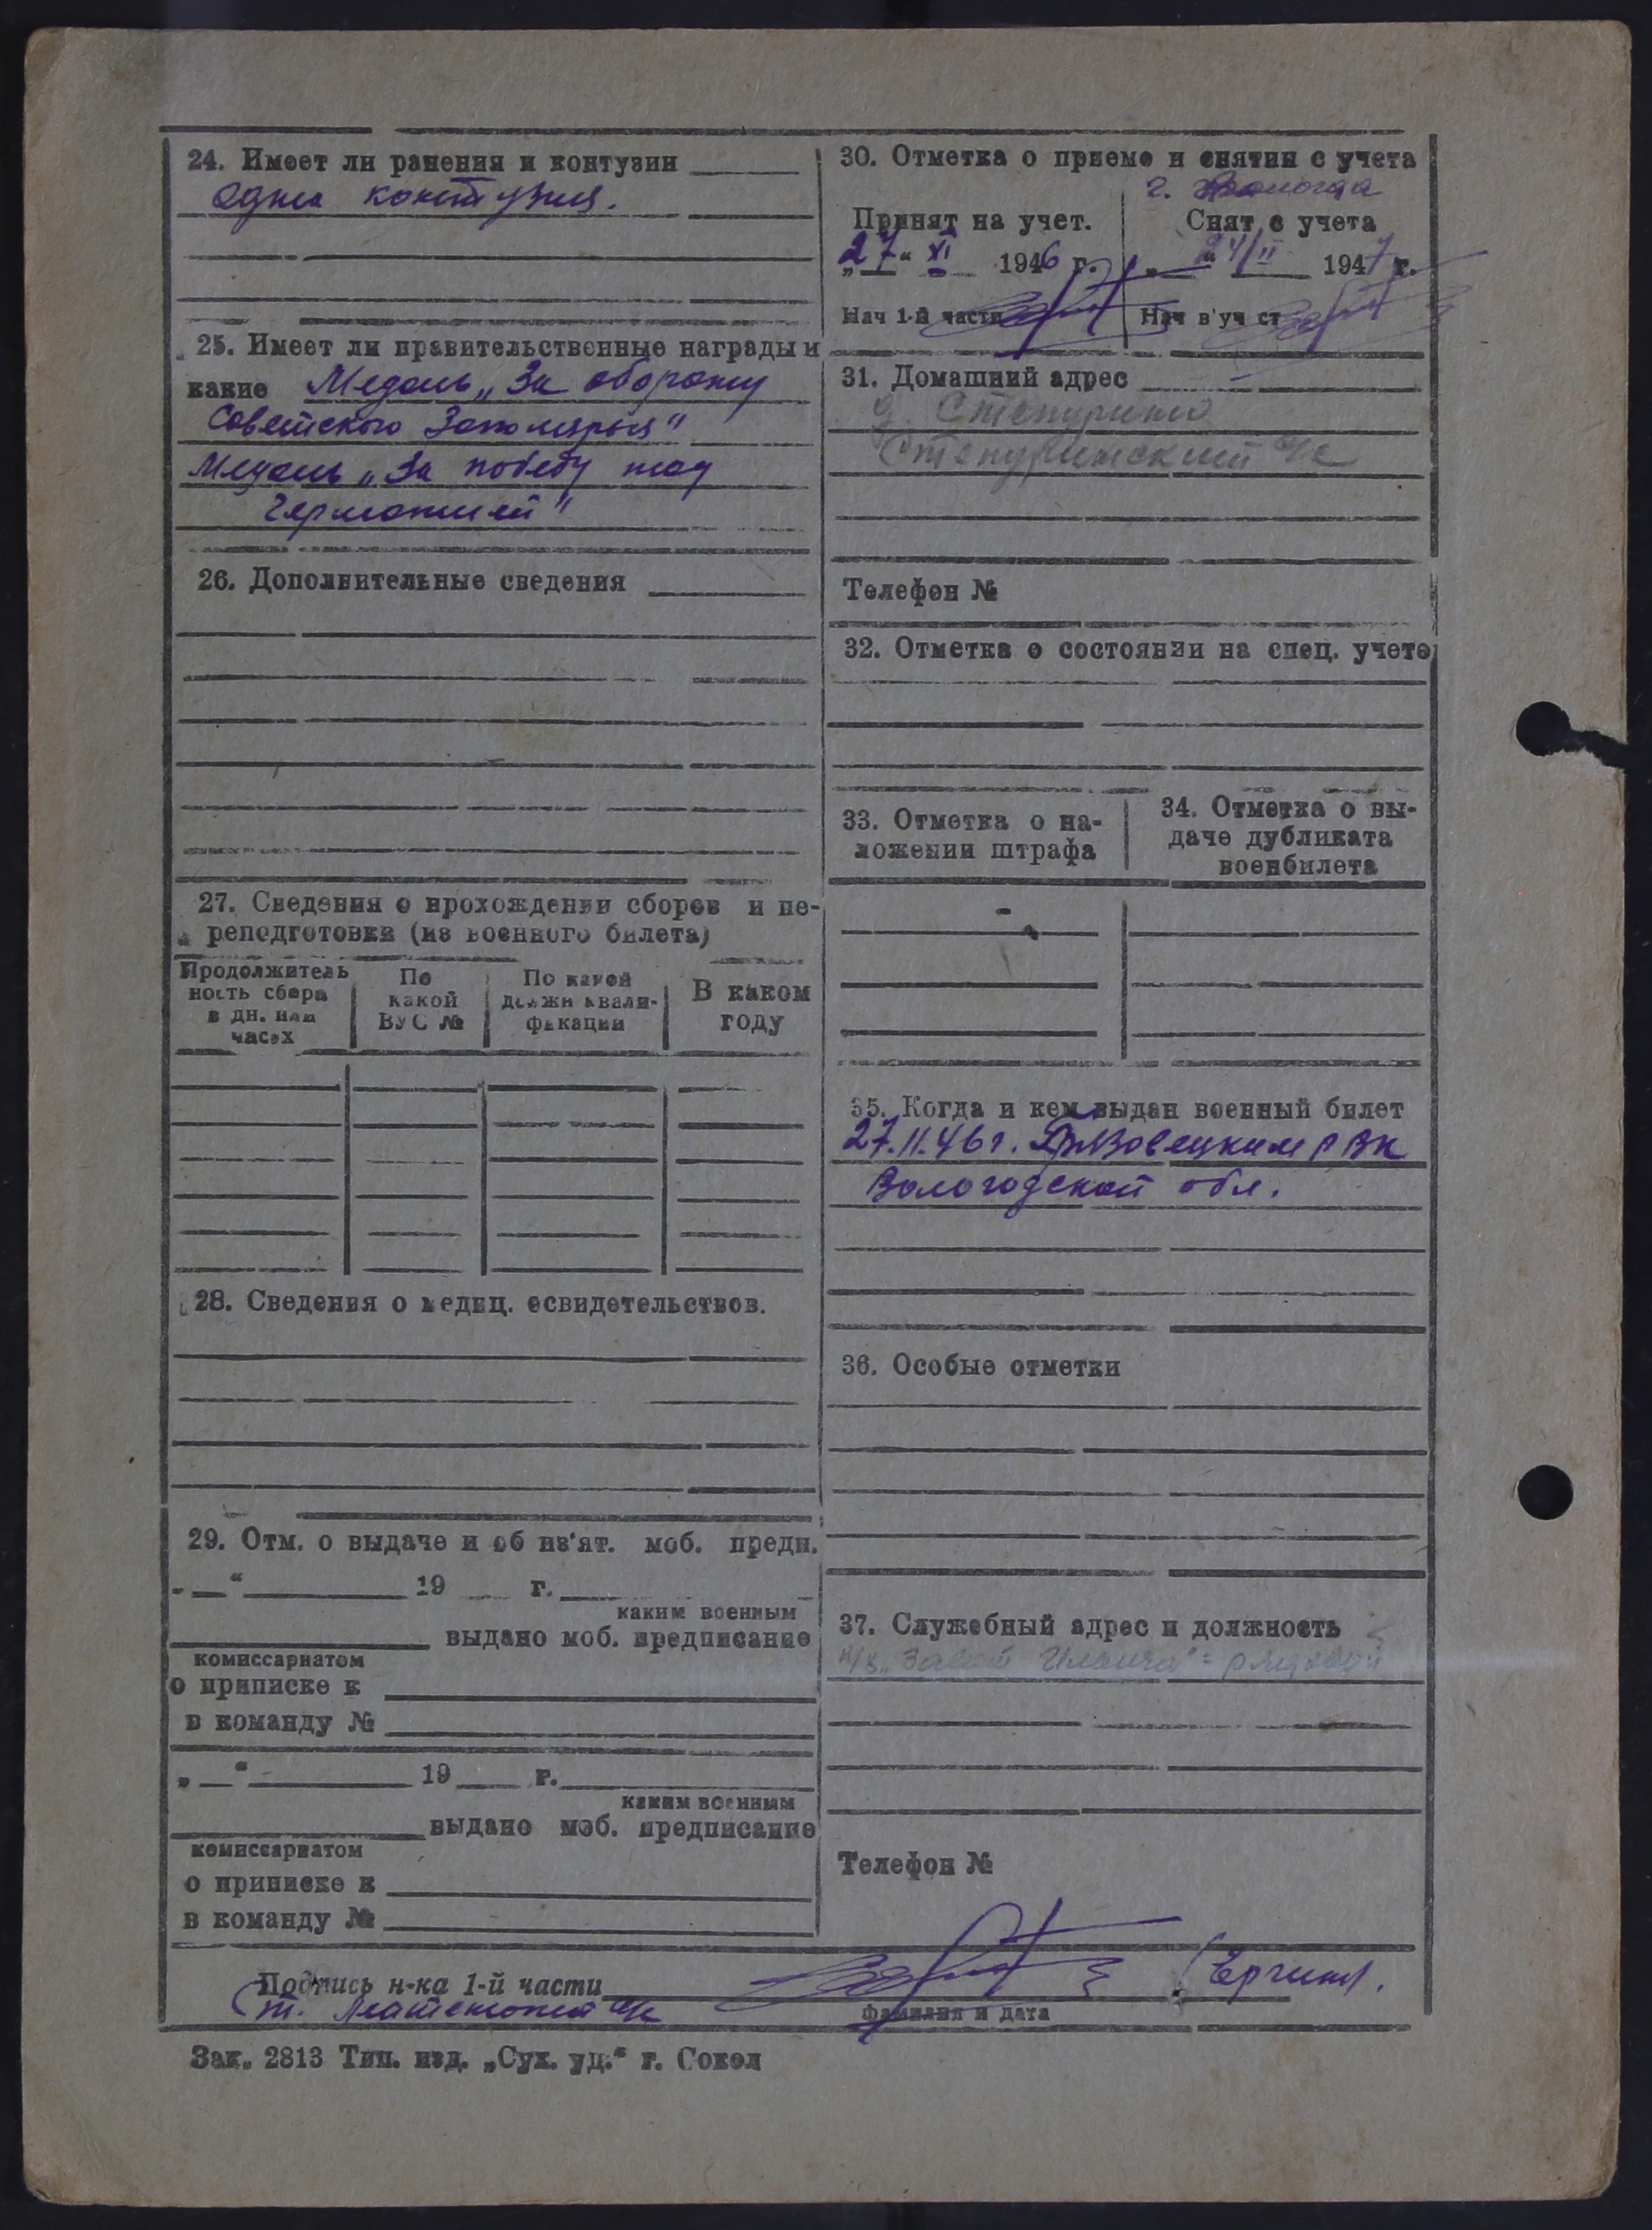 24. Имеет ли ранения и контузии
одна контузия.
25. Имеет ли правительственные награды и
какие Медаль „За оборону
Советского Заполярья"
Медаль „За победу над
Германией"
26. Дополнительные сведения
27. Сведения о прохождении сборов и пе-
реподготовки (из военного билета)
Продолжитель
ность сбора
в дн. или
часах
По
какой
ВУС №
По какой
должн квали-
фикации
В каком
году
28. Сведения о медиц. освидетельствов.
29. Отм. о выдаче и об из'ят. моб. предп.
„ “ 19 г.
каким военным
выдано моб. предписание
комиссариатом
о приписке к
в команду №
„ “ 19 г.
каким военным
выдано моб. предписание
комиссариатом
о приписке к
в команду №
30. Отметка о приеме и снятии с учета
г. Вологда
Принят на учет.
Снят с учета
„27“ XI 1946 г.
24/II 1947 г.
Нач 1-й части
Нач в'уч ст
31. Домашний адрес
д. Степурино
Степуринский с/с
Телефон №
32. Отметка о состоянии на спец. учете
33. Отметка о на-
ложении штрафа
34. Отметка о вы-
даче дубликата
военбилета
35. Когда и кем выдан военный билет
27.11.46 г. Грязовецким РВК
Вологодской обл.
36. Особые отметки
37. Служебный адрес и должность
к/з „Завет Ильича" = рядовой
Телефон №
Подпись н-ка 1-й части
Ст. Лейтенант
фамилия и дата
Зак. 2813 Тип. изд. „Сух. уд.“ г. Сокол